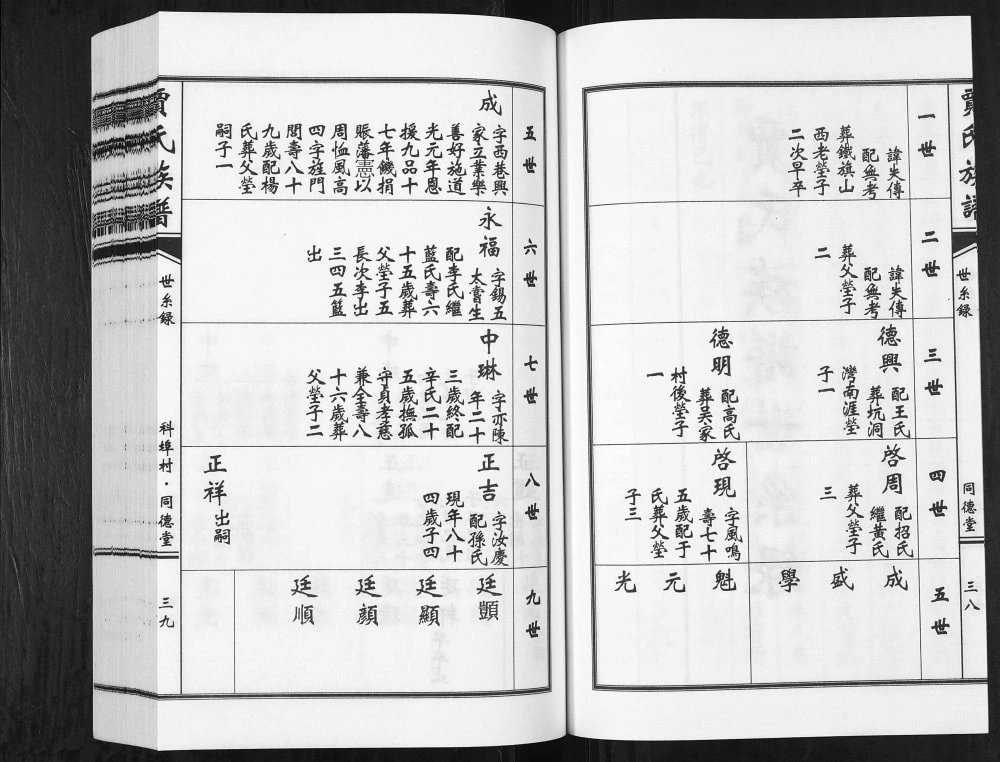 賈氏族譜
世系録
同德堂
三八
一世
諱失傳
配無考
葬鐵旗山
西老塋子
二次早卒
二世
諱失傳
配無考
葬父塋子
二
三世
德興
配王氏
葬坑洞
灣南涯塋
子一
德明
配高氏
葬吴家
村後塋子
一
四世
啓周
配招氏
繼黃氏
葬父塋子
三
啓現
字風鳴
壽七十
五歲配于
氏葬父塋
子三
五世
成
盛
學
魁
元
光
五世
成
字西巷興
家立業樂
善好施道
光元年恩
授九品十
七年饑捐
賑藩憲以
周恤風高
四字旌門
閭壽八十
九歲配楊
氏葬父塋
嗣子一
六世
永福
字錫五
太嘗生
配李氏繼
藍氏壽六
十五歲葬
父塋子五
長次李出
三四五藍
出
七世
中琳
字亦陳
年二十
三歲終配
辛氏二十
五歲撫孤
守貞孝慈
兼全壽八
十六歲葬
父塋子二
八世
正吉
字汝慶
配孫氏
現年八十
四歲子四
正祥
出嗣
九世
廷顗
廷顯
廷顔
廷順
賈氏族譜
世系録
科埠村·同德堂
三九